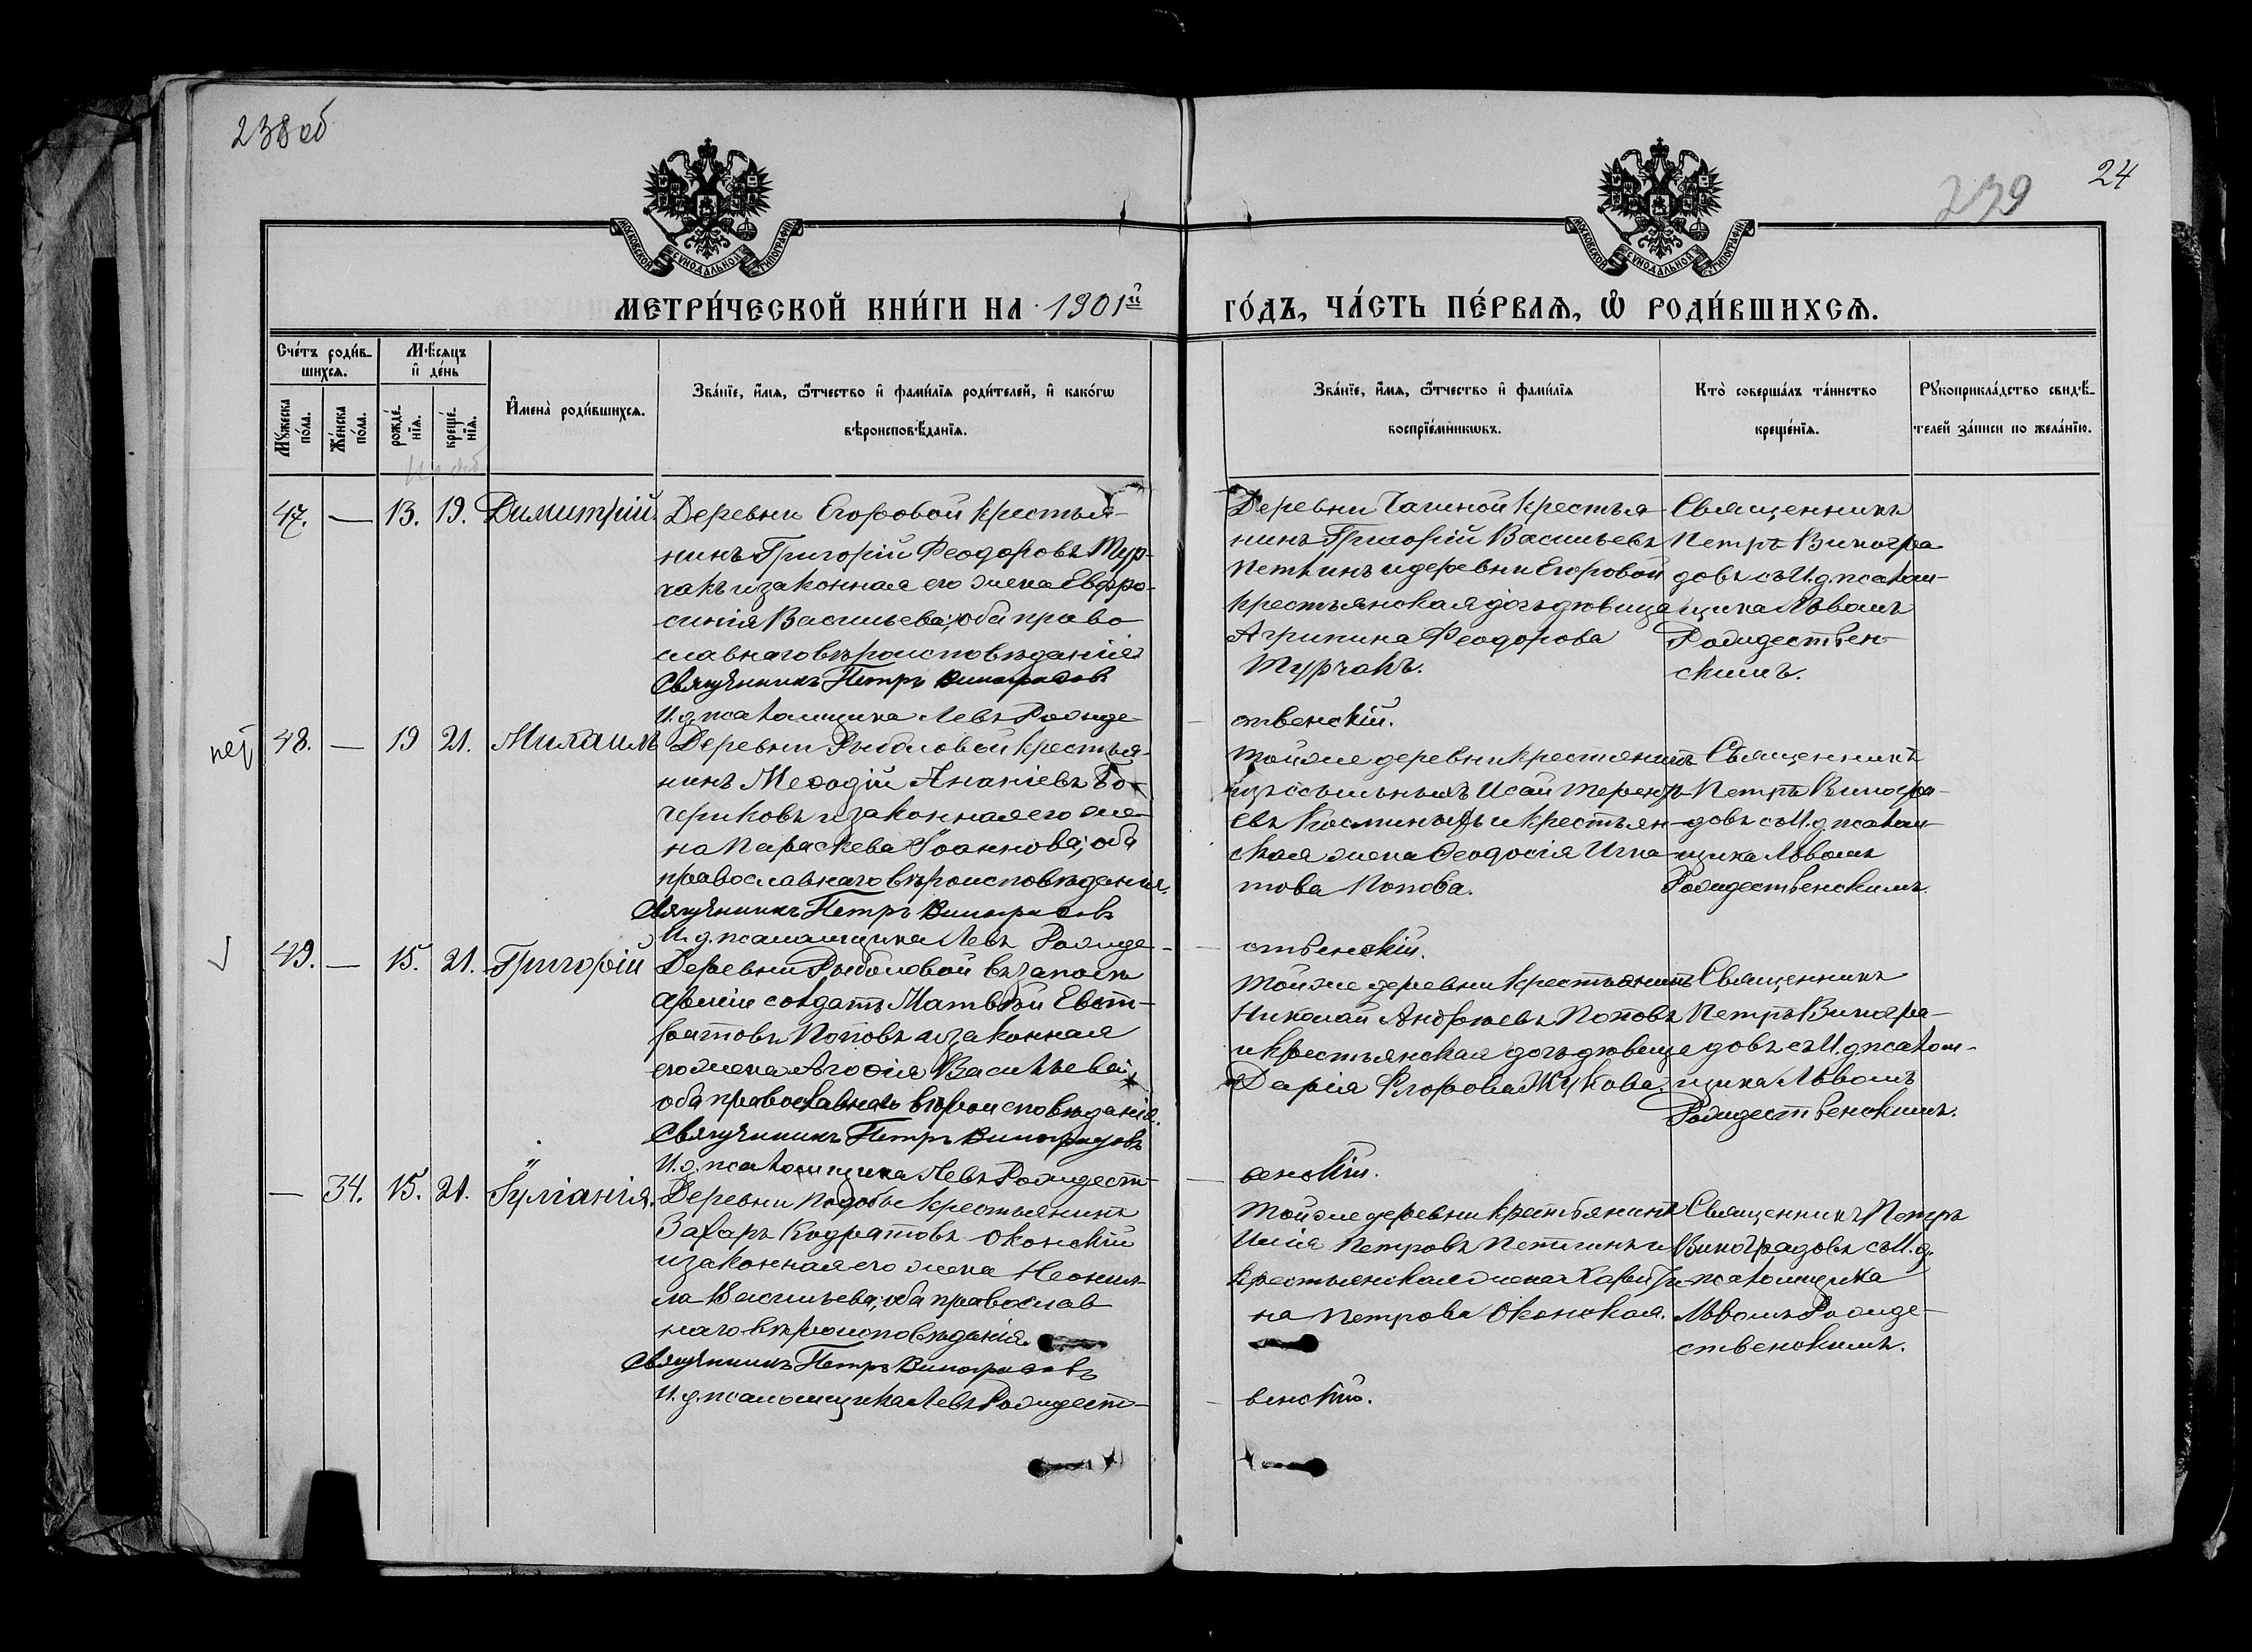 238 об
24
239
МОСКОВСКОЙ СѴНОДАЛЬНОЙ ТИПОГРАФІИ
МОСКОВСКОЙ СѴНОДАЛЬНОЙ ТИПОГРАФІИ
МЕТРИ́ЧЕСКОЙ КНИ́ГИ НА 1901й
ГО́ДЪ, ЧА́СТЬ ПЕ́РВАѦ, Ѡ҆ РОДИ́ВШИХСѦ.
Сче́тъ роди́в-
шихсѧ.
Мѣ́сяцъ
и҆ де́нь
Мꙋ́жеска по́ла.
Же́нска по́ла.
рожде́-
нїѧ.
креще́-
нїѧ.
И҆мена̀ роди́вшихсѧ.
Зва́нїе, и҆́мѧ, ѻ҆́тчество и҆ фами́лїѧ роди́телей, и҆ како́гѡ
вѣроисповѣ́данїѧ.
Зва́нїе, и҆́мѧ, ѻ҆́тчество и҆ фами́лїѧ
воспрїе́мникѡвъ.
Кто̀ соверша́лъ та́инство
креще́нїѧ.
Рꙋкоприкла́дство свидѣ́-
телей за́писи по жела́нїю.
47. — 13. 19. Димитрій.
Деревни Егоровой крестья-
нинъ Григорій Феодоровъ Тур-
чакъ и законная его жена Евфро-
синія Васильева; оба право
славнаго вѣроисповѣданія
Священникъ Петръ Виноградовъ
И.д. псаломщика Левъ Рожде
ственскій.
Деревни Чагиной крестья-
нинъ Григорій Васильевъ
Петлинъ и деревни Егоровой
крестьянская дочь дѣвица
Агрипина Феодорова
Турчакъ.
Священникъ
Петръ Виногра
довъ съ И.д. псалом-
щика Львомъ
Рождествен-
скимъ.
48. — 19 21. Михаилъ
Деревни Рыболовой крестья-
нинъ Меѳодій Ананіевъ Бо-
чериковъ и законная его же-
на Параскева Іоаннова; оба
православнаго вѣроисповѣданія.
Священникъ Петръ Виноградовъ
И.д. псаломщика Левъ Рожде-
ственскій.
Той же деревни крестянинъ
изъ ссыльныхъ Исай Терентъ-
евъ и крестьян-
ская жена Ѳеодосія Игна-
това Попова.
Священникъ
Петръ Виногра-
довъ съ И.д. псалом-
щика Львомъ
Рождественскимъ.
49. — 15. 21. Григорій
Деревни Рыболовой въ запасѣ
арміи солдатъ Матвѣй Евст-
ратовъ Поповъ и законная
его жена Агафія Васильева;
оба православнаго вѣроисповѣданія.
Священникъ Петръ Виноградовъ
И.д. псаломщика Левъ Рождест-
венскій.
Той же деревни крестьянинъ
Николай Андреевъ Поповъ
и крестьянская дочь дѣвица
Дарія Егорова Жукова.
Священникъ
Петръ Виногра-
довъ съ И.д. псалом-
щика Львомъ
Рождественскимъ.
— 34. 15. 21. Іуліанія.
Деревни Подобы крестьянинъ
Захаръ Кодратовъ Оконскій
и законная его жена Неони-
ла Васильева; оба православ
наго вѣроисповѣданія.
Священникъ Петръ Виноградовъ
И.д. псаломщика Левъ Рождест-
венскій.
Той же деревни крестьянинъ
Илія Петровъ Петлинъ и
крестьянская жена Харити-
на Петрова Оконская.
Священникъ Петръ
Виноградовъ съ И.д.
псаломщика
Львомъ Рожде-
ственскимъ.